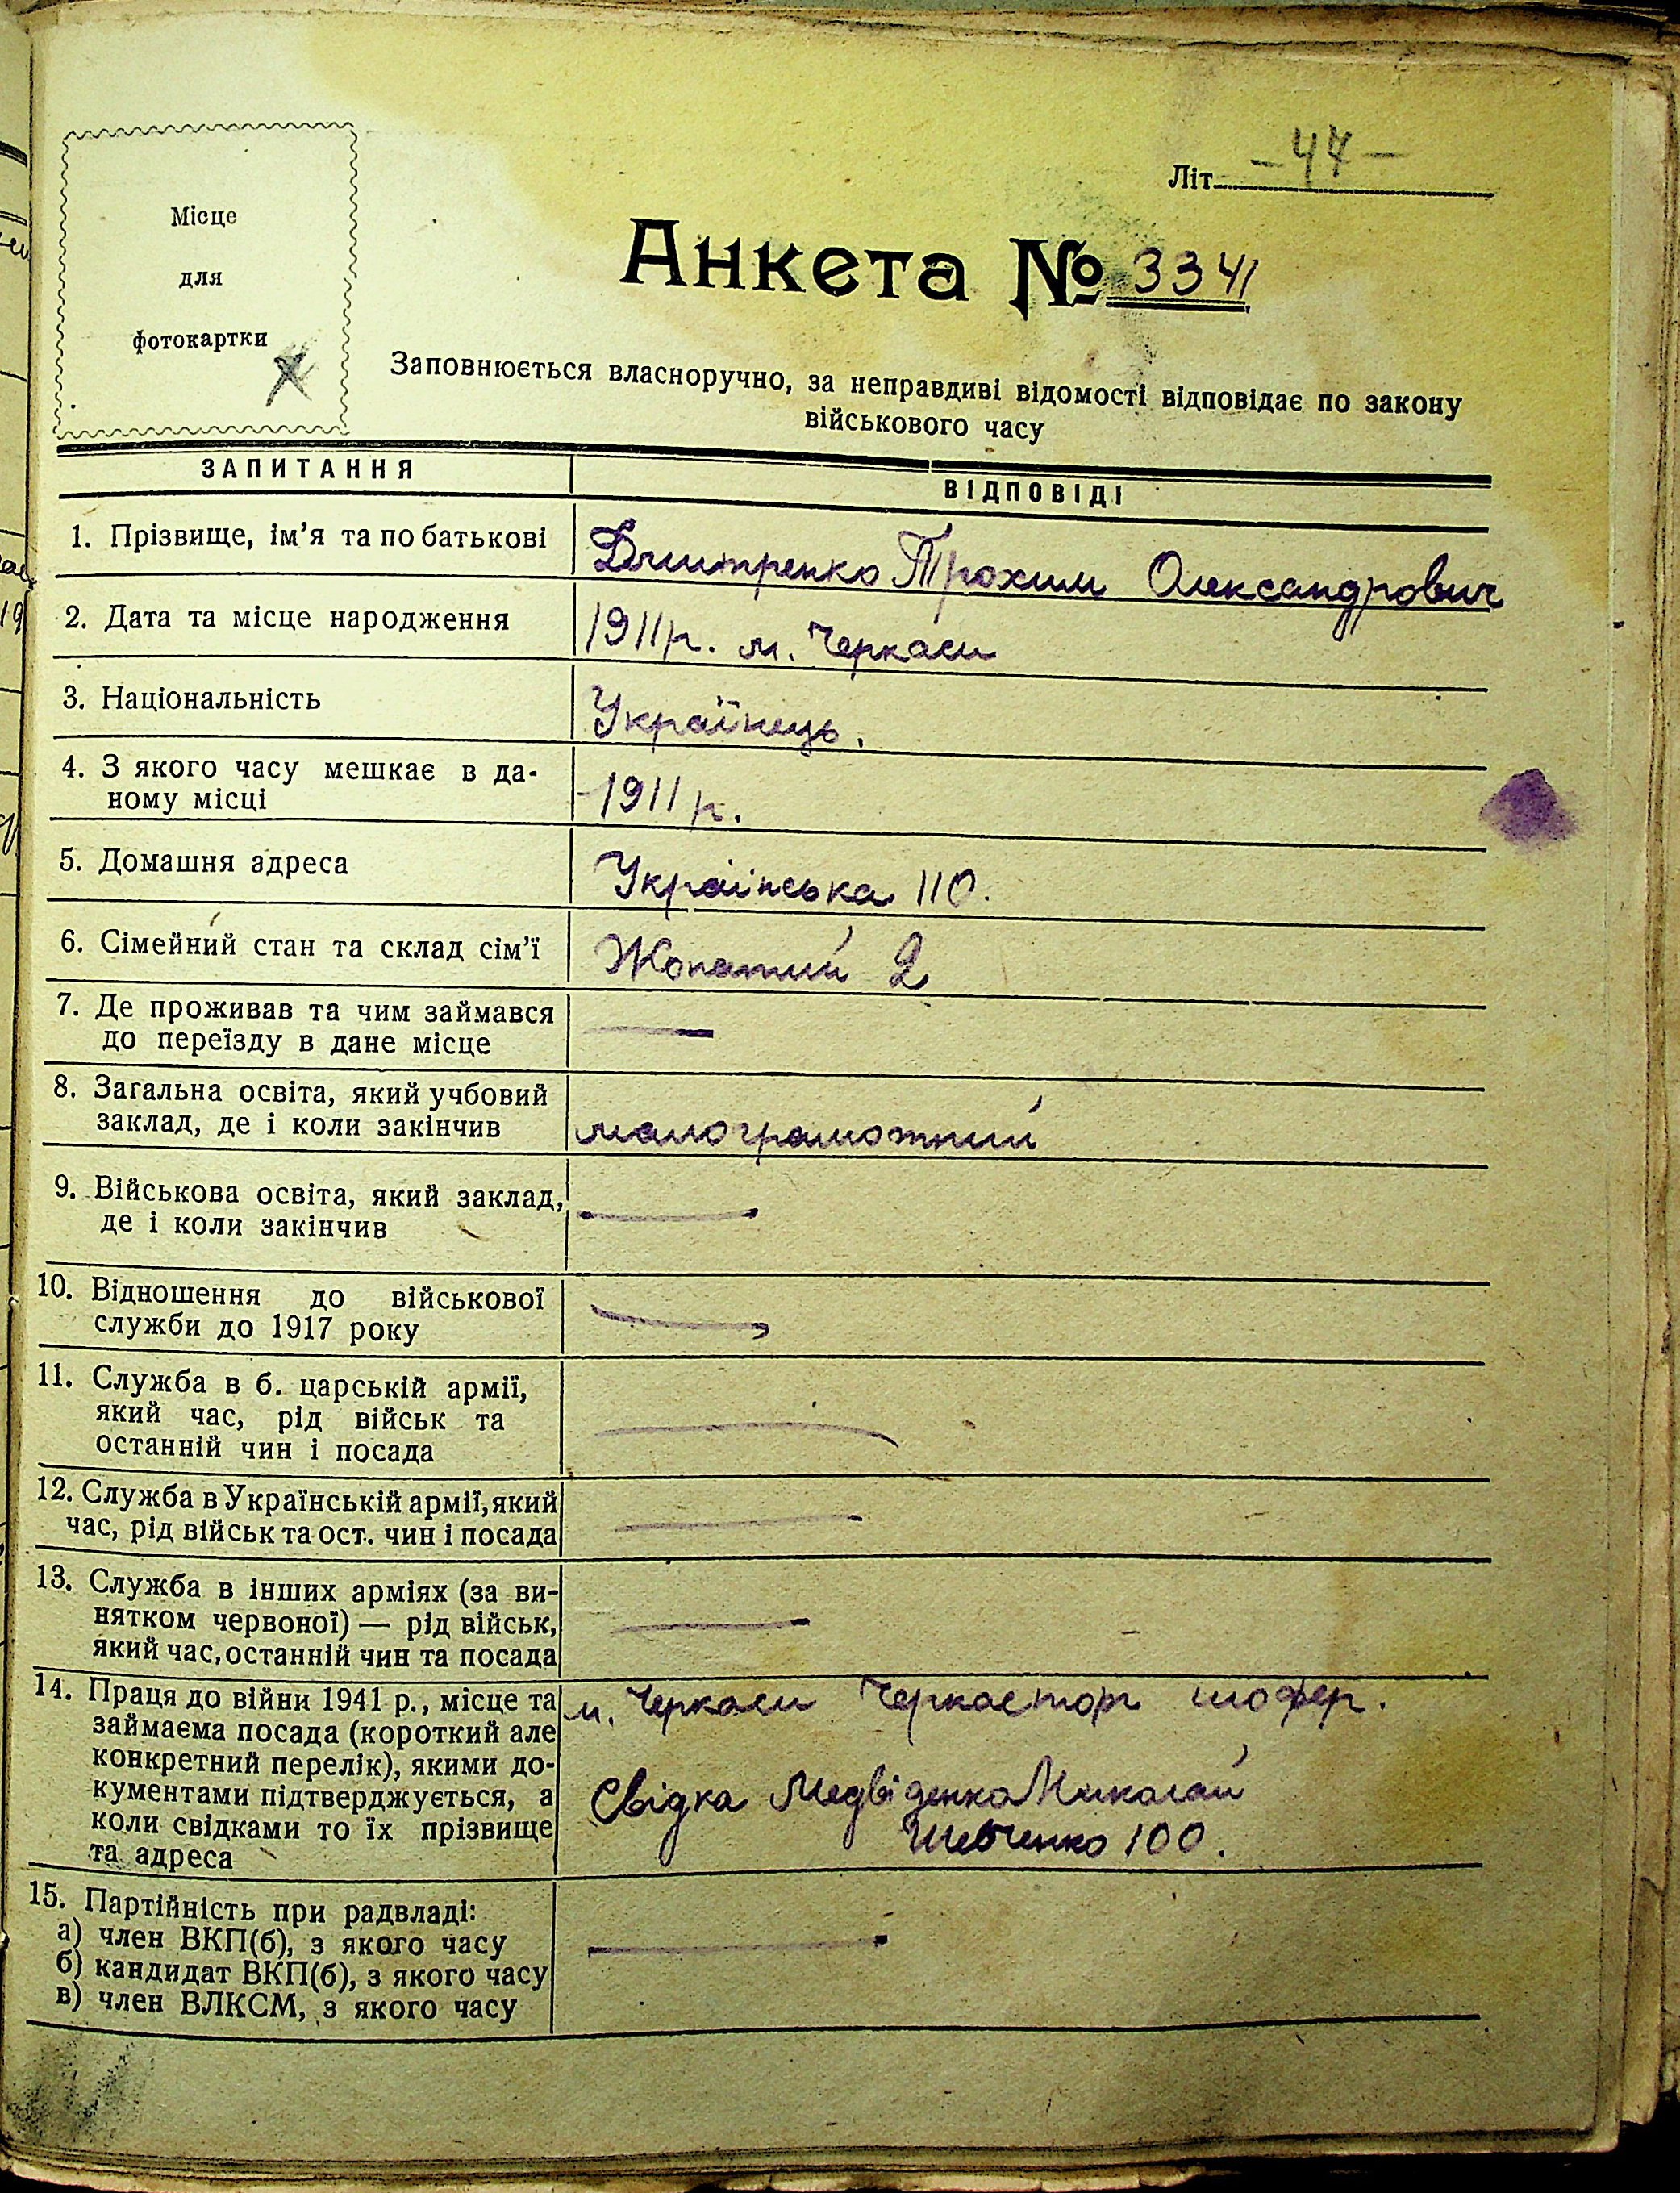 Літ. -47-
Місце
для
фотокартки
Анкета № 3341
Заповнюється власноручно, за неправдиві відомості відповідає по закону
військового часу
ЗАПИТАННЯ ВІДПОВІДІ
1. Прізвище, ім'я та по батькові Дмитренко Трохим Олександрович
2. Дата та місце народження 1911р. м. Черкаси
3. Національність Українець.
4. З якого часу мешкає в да-
ному місці -1911 р.
5. Домашня адреса Українська 110.
6. Сімейний стан та склад сім'ї Жонатий 2
7. Де проживав та чим займався
до переїзду в дане місце —
8. Загальна освіта, який учбовий
заклад, де і коли закінчив малограмотний
9. Військова освіта, який заклад,
де і коли закінчив —
10. Відношення до військової
служби до 1917 року —
11. Служба в б. царській армії,
який час, рід військ та
останній чин і посада —
12. Служба в Українській армії, який
час, рід військ та ост. чин і посада —
13. Служба в інших арміях (за ви-
нятком червоної) — рід військ,
який час, останній чин та посада —
14. Праця до війни 1941 р., місце та м. Черкаси Черкасторг шофер.
займаєма посада (короткий але
конкретний перелік), якими до-
кументами підтверджується, а Свідка Медвіденко Миколай
коли свідками то їх прізвище Шевченко 100.
та адреса
15. Партійність при радвладі:
а) член ВКП(б), з якого часу —
б) кандидат ВКП(б), з якого часу
в) член ВЛКСМ, з якого часу